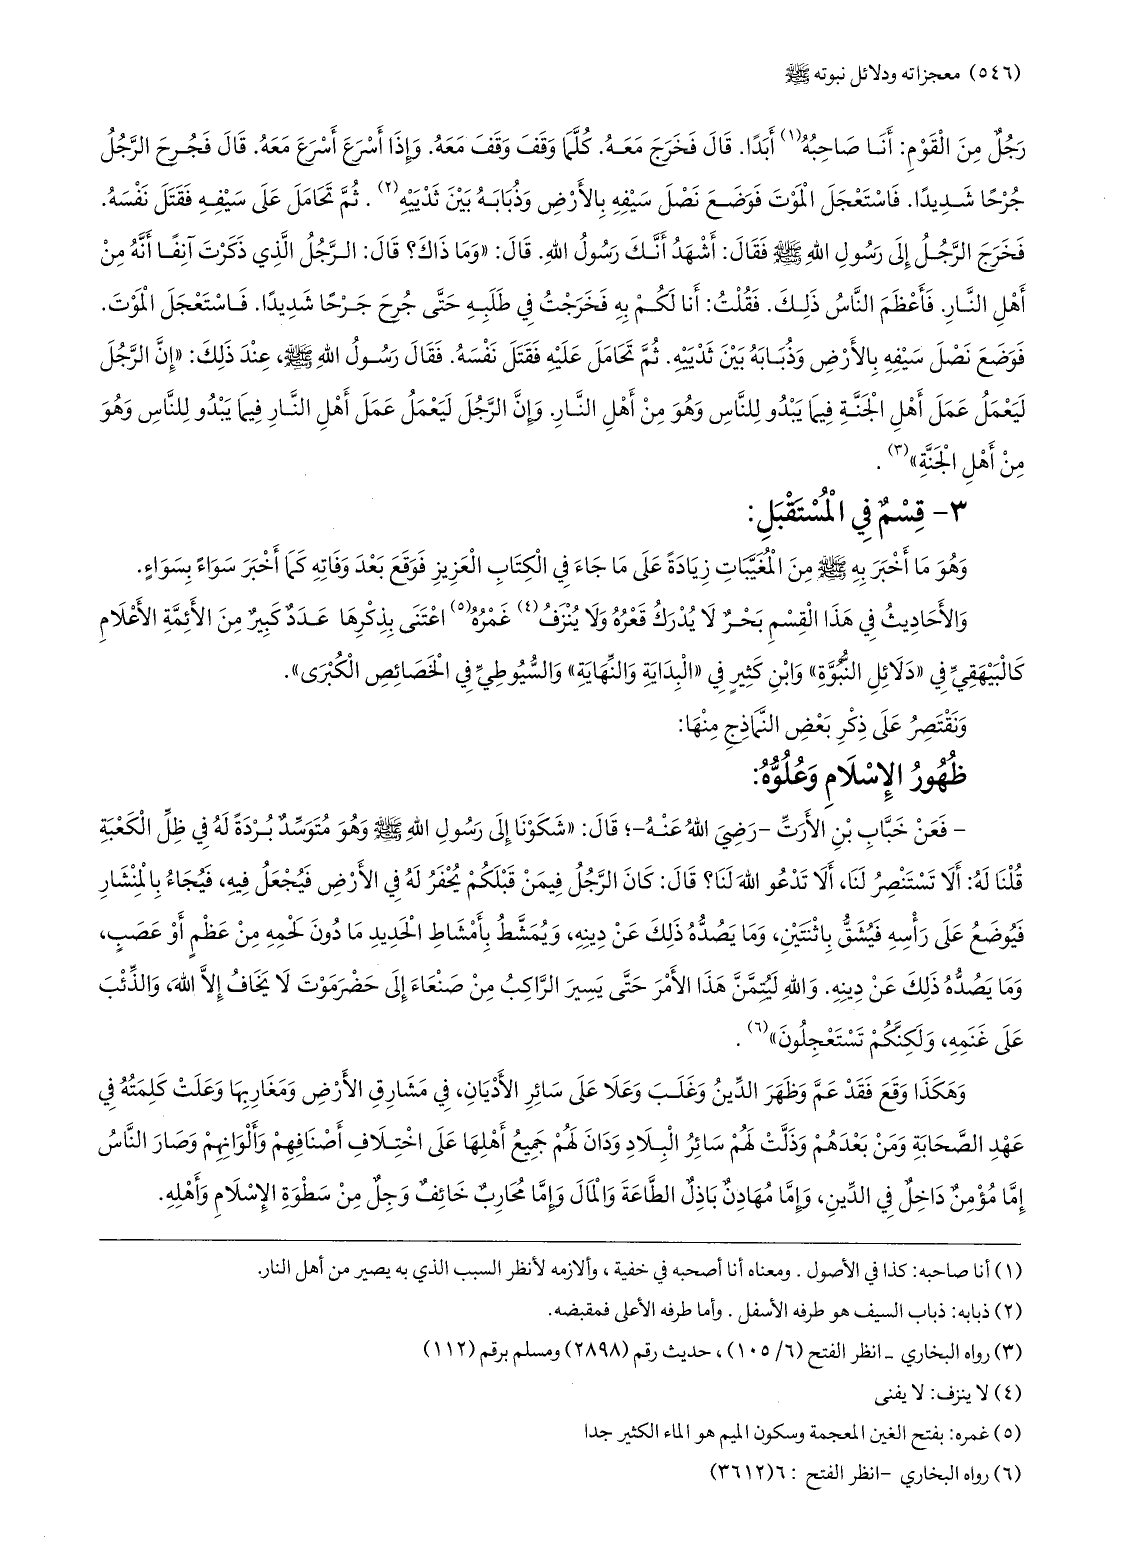 (٥٤٦) معجزاته ودلائل نبوته ﷺ
رَجُلٌ مِنَ الْقَوْمِ: أَنَا صَاحِبُهُ(١) أَبَدًا. قَالَ فَخَرَجَ مَعَهُ. كُلَّمَا وَقَفَ وَقَفَ مَعَهُ. وَإِذَا أَسْرَعَ أَسْرَعَ مَعَهُ. قَالَ فَجُرِحَ الرَّجُلُ
جُرْحًا شَدِيدًا. فَاسْتَعْجَلَ الْمَوْتَ فَوَضَعَ نَصْلَ سَيْفِهِ بِالأَرْضِ وَذُبَابَهُ بَيْنَ ثَدْيَيْهِ(٢) . ثُمَّ تَحَامَلَ عَلَى سَيْفِهِ فَقَتَلَ نَفْسَهُ.
فَخَرَجَ الرَّجُلُ إِلَى رَسُولِ اللهِ ﷺ فَقَالَ: أَشْهَدُ أَنَّكَ رَسُولُ اللهِ. قَالَ: «وَمَا ذَاكَ؟ قَالَ: الرَّجُلُ الَّذِي ذَكَرْتَ آنِفًا أَنَّهُ مِنْ
أَهْلِ النَّارِ. فَأَعْظَمَ النَّاسُ ذَلِكَ. فَقُلْتُ: أَنا لَكُمْ بِهِ فَخَرَجْتُ فِي طَلَبِهِ حَتَّى جُرِحَ جَرْحًا شَدِيدًا. فَاسْتَعْجَلَ الْمَوْتَ.
فَوَضَعَ نَصْلَ سَيْفِهِ بِالأَرْضِ وَذُبَابَهُ بَيْنَ ثَدْيَيْهِ. ثُمَّ تَحَامَلَ عَلَيْهِ فَقَتَلَ نَفْسَهُ. فَقَالَ رَسُولُ اللهِ ﷺ، عِنْدَ ذَلِكَ: «إِنَّ الرَّجُلَ
لَيَعْمَلُ عَمَلَ أَهْلِ الْجَنَّةِ فِيمَا يَبْدُو لِلنَّاسِ وَهُوَ مِنْ أَهْلِ النَّارِ. وَإِنَّ الرَّجُلَ لَيَعْمَلُ عَمَلَ أَهْلِ النَّارِ فِيمَا يَبْدُو لِلنَّاسِ وَهُوَ
مِنْ أَهْلِ الْجَنَّةِ»(٣) .
٣- قِسْمٌ فِي الْمُسْتَقْبَلِ:
وَهُوَ مَا أَخْبَرَ بِهِ ﷺ مِنَ الْمُغَيَّبَاتِ زِيَادَةً عَلَى مَا جَاءَ فِي الْكِتَابِ الْعَزِيزِ فَوَقَعَ بَعْدَ وَفَاتِهِ كَمَا أَخْبَرَ سَوَاءً بِسَوَاءٍ.
وَالأَحَادِيثُ فِي هَذَا الْقِسْمِ بَحْرٌ لَا يُدْرَكُ قَعْرُهُ وَلَا يُنْزَفُ(٤) غَمْرُهُ(٥) اعْتَنَى بِذِكْرِهَا عَدَدٌ كَبِيرٌ مِنَ الأَئِمَّةِ الأَعْلَامِ
كَالْبَيْهَقِيِّ فِي «دَلَائِلِ النُّبُوَّةِ» وَابْنِ كَثِيرٍ فِي «الْبِدَايَةِ وَالنِّهَايَةِ» وَالسُّيُوطِيِّ فِي الْخَصَائِصِ الْكُبْرَى».
وَنَقْتَصِرُ عَلَى ذِكْرِ بَعْضِ النَّمَاذِجِ مِنْهَا:
ظُهُورُ الإِسْلَامِ وَعُلُوُّهُ:
- فَعَنْ خَبَّابِ بْنِ الأَرَتِّ -رَضِيَ اللهُ عَنْهُ-؛ قَالَ: «شَكَوْنَا إِلَى رَسُولِ اللهِ ﷺ وَهُوَ مُتَوَسِّدٌ بُرْدَةً لَهُ فِي ظِلِّ الْكَعْبَةِ
قُلْنَا لَهُ: أَلَا تَسْتَنْصِرُ لَنَا، أَلَا تَدْعُو اللهَ لَنَا؟ قَالَ: كَانَ الرَّجُلُ فِيمَنْ قَبْلَكُمْ يُحْفَرُ لَهُ فِي الأَرْضِ فَيُجْعَلُ فِيهِ، فَيُجَاءُ بِالْمِنْشَارِ
فَيُوضَعُ عَلَى رَأْسِهِ فَيُشَقُّ بِاثْنَتَيْنِ، وَمَا يَصُدُّهُ ذَلِكَ عَنْ دِينِهِ، وَيُمَشَّطُ بِأَمْشَاطِ الْحَدِيدِ مَا دُونَ لَحْمِهِ مِنْ عَظْمٍ أَوْ عَصَبٍ،
وَمَا يَصُدُّهُ ذَلِكَ عَنْ دِينِهِ. وَاللهِ لَيُتِمَّنَّ هَذَا الأَمْرَ حَتَّى يَسِيرَ الرَّاكِبُ مِنْ صَنْعَاءَ إِلَى حَضْرَمَوْتَ لَا يَخَافُ إِلاَّ اللهَ، وَالذِّئْبَ
عَلَى غَنَمِهِ، وَلَكِنَّكُمْ تَسْتَعْجِلُونَ»(٦) .
وَهَكَذَا وَقَعَ فَقَدْ عَمَّ وَظَهَرَ الدِّينُ وَغَلَبَ وَعَلَا عَلَى سَائِرِ الأَدْيَانِ، فِي مَشَارِقِ الأَرْضِ وَمَغَارِبِهَا وَعَلَتْ كَلِمَتُهُ فِي
عَهْدِ الصَّحَابَةِ وَمَنْ بَعْدَهُمْ وَذَلَّتْ لَهُمْ سَائِرُ الْبِلَادِ وَدَانَ لَهُمْ جَمِيعُ أَهْلِهَا عَلَى اخْتِلَافِ أَصْنَافِهِمْ وَأَلْوَانِهِمْ وَصَارَ النَّاسُ
إِمَّا مُؤْمِنٌ دَاخِلٌ فِي الدِّينِ، وَإِمَّا مُهَادِنٌ بَاذِلٌ الطَّاعَةَ وَالْمَالَ وَإِمَّا مُحَارِبٌ خَائِفٌ وَجِلٌ مِنْ سَطْوَةِ الإِسْلَامِ وَأَهْلِهِ.
(١) أنا صاحبه: كذا في الأصول . ومعناه أنا أصحبه في خفية ، وألازمه لأنظر السبب الذي به يصير من أهل النار.
(٢) ذبابه: ذباب السيف هو طرفه الأسفل . وأما طرفه الأعلى فمقبضه.
(٣) رواه البخاري - انظر الفتح (٦/ ١٠٥) ، حديث رقم (٢٨٩٨) ومسلم برقم (١١٢)
(٤) لا ينزف: لا يفنى
(٥) غمره: بفتح الغين المعجمة وسكون الميم هو الماء الكثير جدا
(٦) رواه البخاري -انظر الفتح : ٦(٣٦١٢)